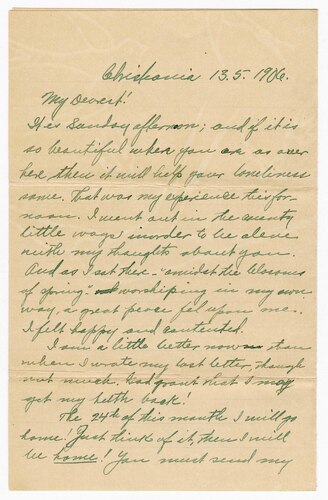 Christiania 13.5. 1906.
My Dearest!
It is Sunday afternoon; and if it is
so beautiful where you are as over
here, then it will help your loneliness
some. That was my experience this for-
noon. I went out in the country
little ways in order to be alone
with my thoughts about you.
And as I sat there - "amidst the blossoms
of spring" worshiping in my own
way, a great peace fel upon me.
I felt happy and contented.
I am a little better now than
when I wrote my last letter, though
not much. God grant that I may
get my helth back!
The 24th of this month I will go
home! Just think of it, then I will
be home! You must send my